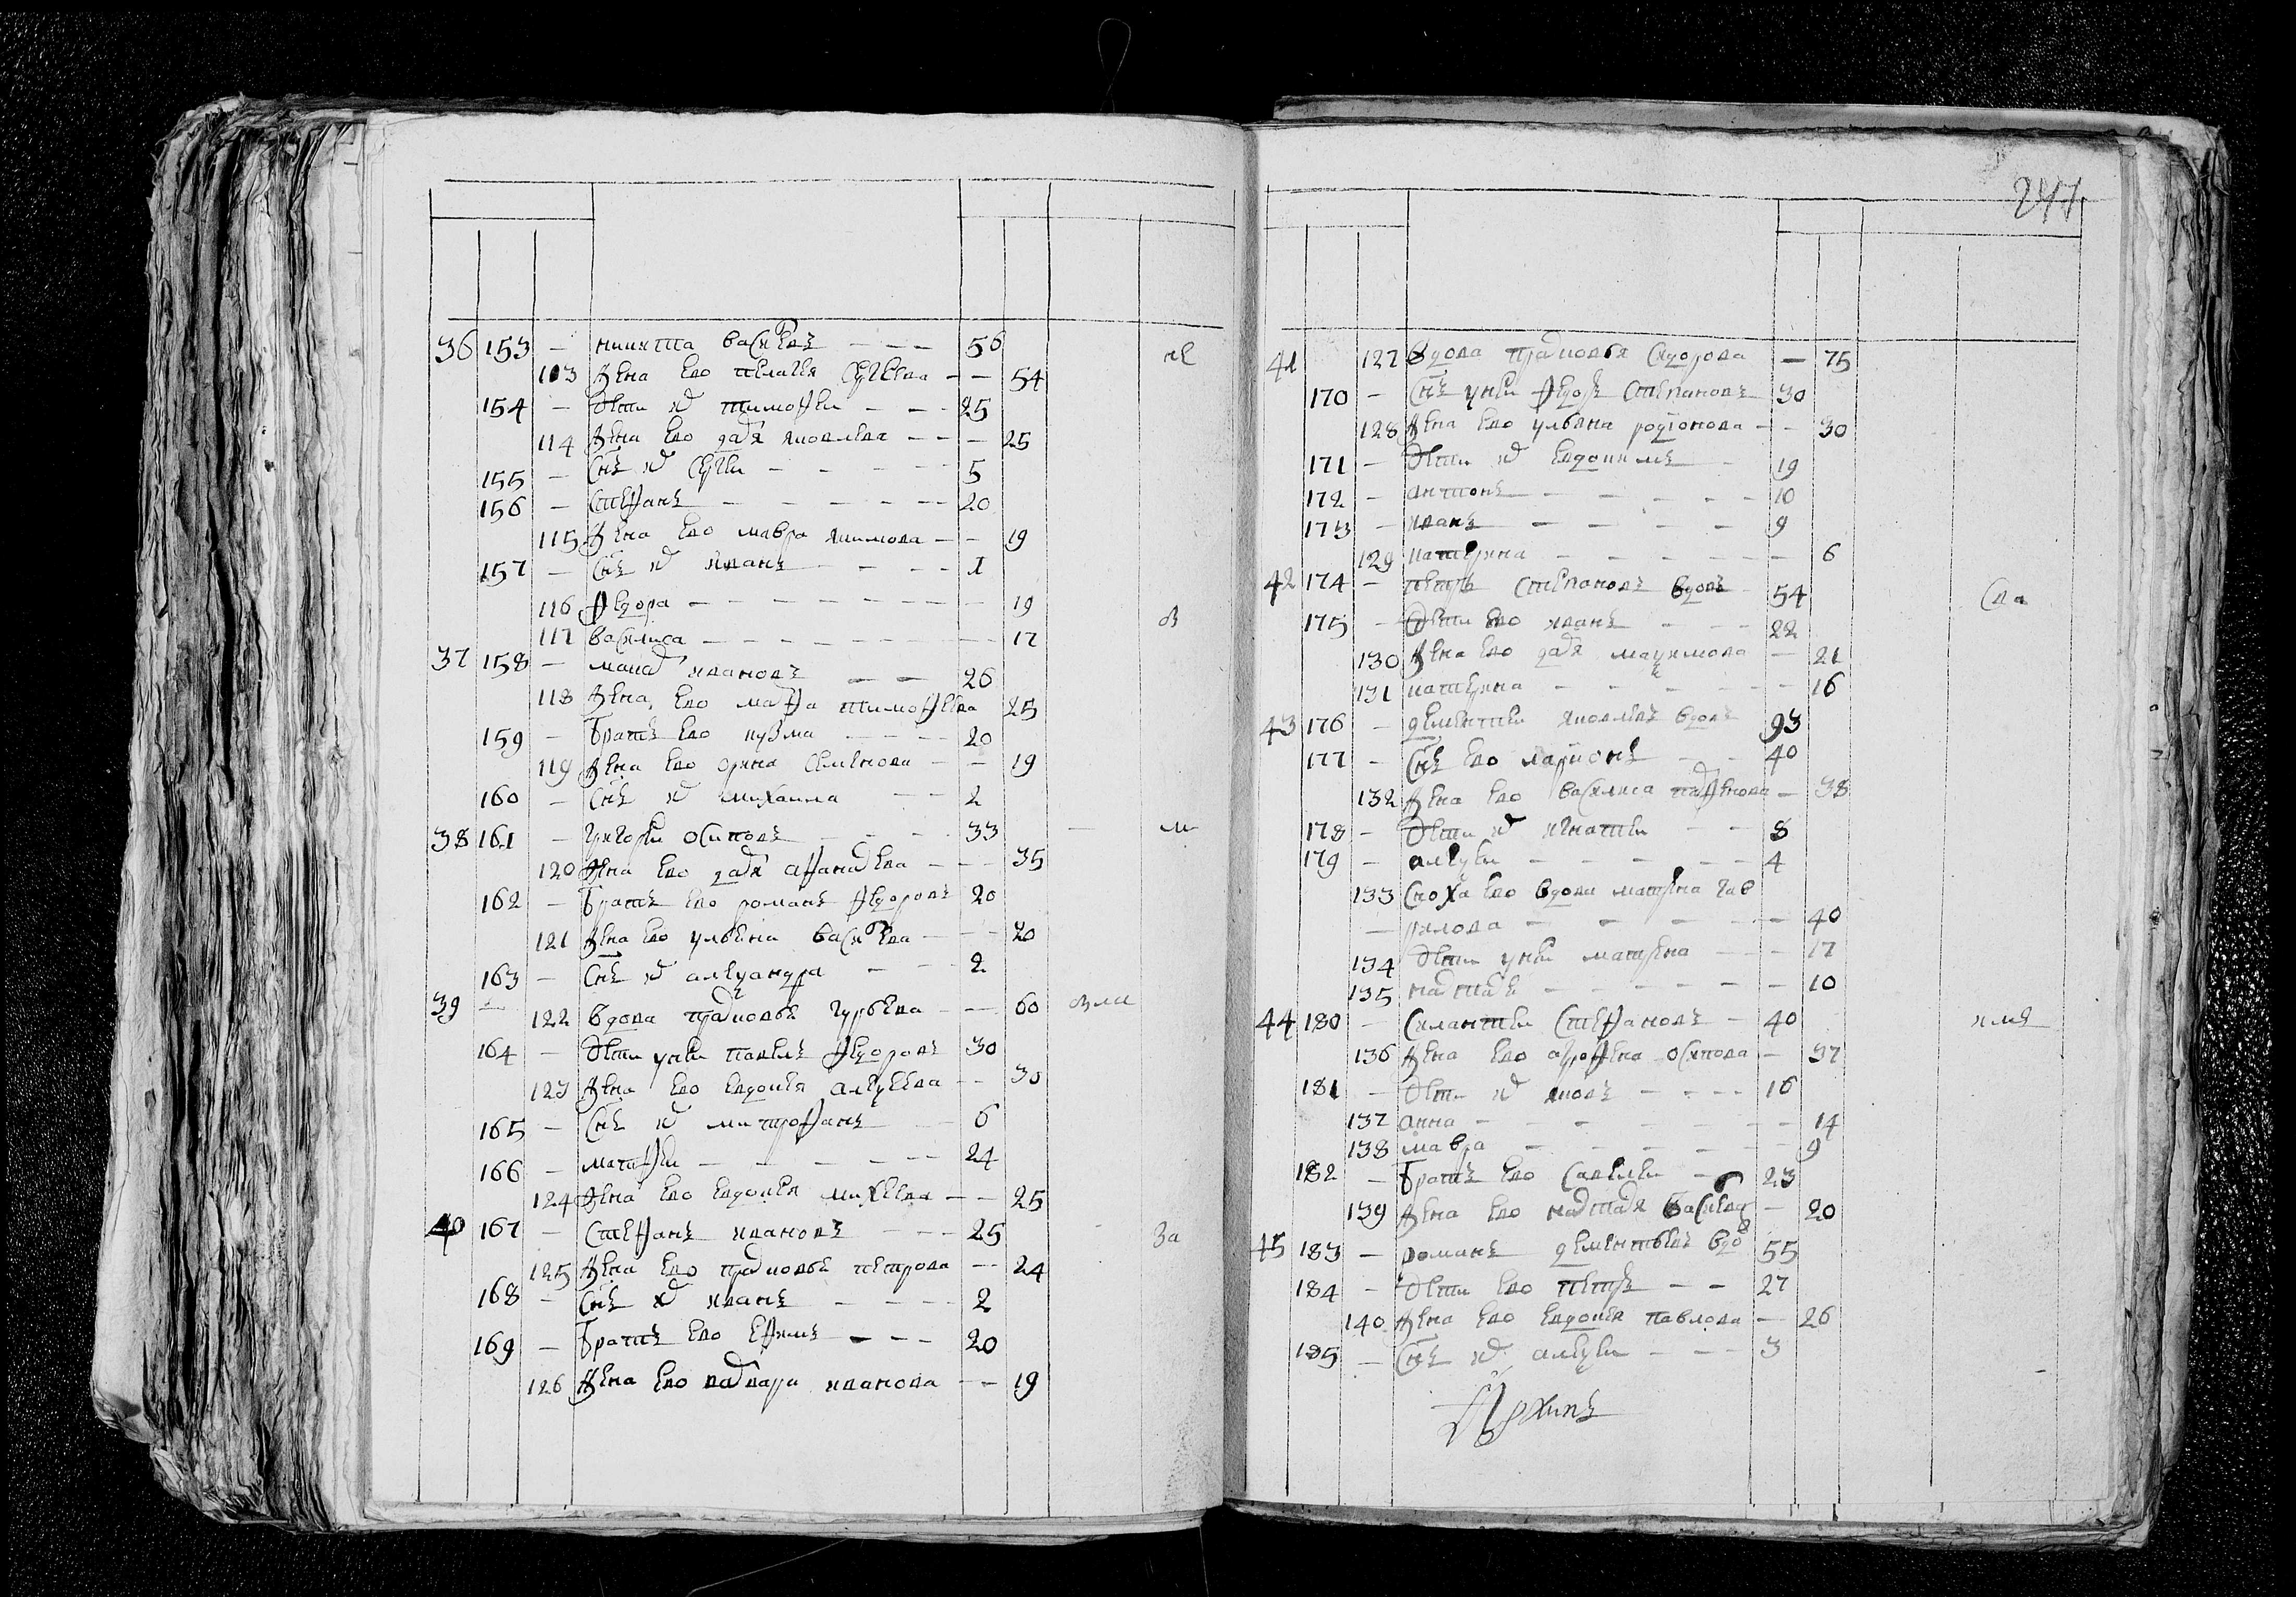 36 153 — никита васильевъ — — — 56
113 жена ево пелагея сергеева — — 54
154 — дети их тимофеи — — — 25
114 жена ево дарья яковлева — — — 25
155 — снъ их сергеи — — — — 5
156 — стефанъ — — — — — — 20
115 жена ево мавра акимова — — 19
157 — снъ их иванъ — — — — 1
116 федора — — — — — — — 19
117 василиса — — — — — — — 17
37 158 — иванов — — 26
118 жена ево марфа тимофеева 25
159 — братъ ево кузма — — — — 20
119 жена ево орина семенова — — 19
160 — снъ их михаила — — 2
38 161 — григореи осиповъ — — — — 33
120 жена ево дарья афанасьева — — — 35
162 — братъ ево романъ федоровъ 20
121 жена ево ульяна васильева — — — 20
163 — снъ их александра — — — 2
39 — 122 вдова прасковья гурьева — — 60
164 — дети у неи павелъ федоровъ 30
123 жена ево евдокея алексеева — — 30
165 — снъ их митрофанъ — 6
166 — матфеи — — — — — — 24
124 жена ево евдокея михеева — — 25
40 167 — стефанъ ивановъ — — — 25 За
125 жена ево прасковья петрова — — 24
168 — снъ их иванъ — — — — 2
169 — братъ ево ефимъ — — — 20
126 жена ево варвара иванова — — 19
247
41 127 вдова прасковья сидорова — 75
170 — снъ у неи федоръ степановъ 30
128 жена ево ульяна родионова — — 30
171 — дети их евдокимъ — 19
172 — антонъ — — — — — 10
173 — иванъ — — — — — 9
129 катерина — — — — — — — 6
42 174 — петръ степановъ вдовъ 54
175 — дети ево иванъ — — — 22
130 жена ево дарья максимова — 21
131 катерина — — — — — — 16
43 176 — дементеи яковлевъ вдовъ 93
177 — снъ ево ларионъ — — 40
132 жена ево василиса парфенова — 38
178 — дети их игнатеи — — 8
179 — алексеи — — — — — 4
133 сноха ево вдова матрена гав
— рилова — — — — — 40
134 дети у неи матрена — — — 17
135 настасья — — — — — — 10
44 180 — силантеи стефановъ — 40 имя
136 жена ево агрофена осипова — 37
181 — дети их яковъ — — — — 16
137 анна — — — — — — — 14
138 мавра — — — — — — 9
182 — братъ ево савелеи — 23
139 жена ево настасья васильева — 20
45 183 — романъ дементьевъ вдов 55
184 — дети ево петръ — — 27
140 жена ево евдокея павлова — 26
185 — снъ их алексеи — — — 3
Архипъ